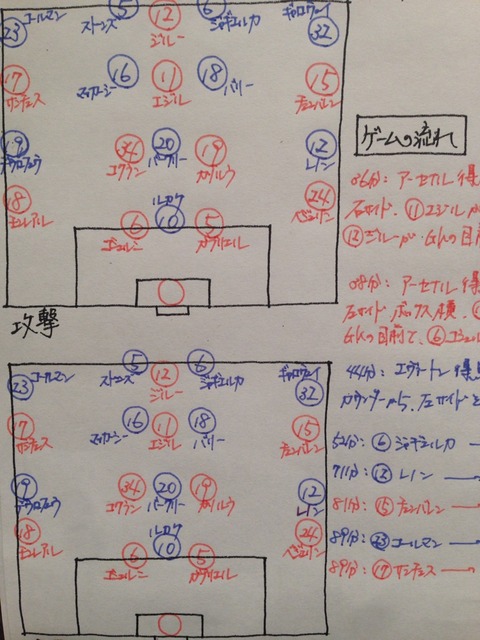 23 コールマン
5 ストーンズ
12 ジルー
6 ジャギェルカ
32 ギャロウェイ
17 サンチェス
16 マッカーシー
11 エジル
18 バリー
15 チェンバレン
19 デウロフェウ
34 コクラン
20 バークリー
19 カソルラ
12 レノン
18 モンレアル
6 コシェルニー
ルカク
10
5 ガブリエル
24 ベジェリン
攻撃
23 コールマン
5 ストーンズ
12 ジルー
6 ジャギェルカ
32 ギャロウェイ
17 サンチェス
16 マッカーシー
11 エジル
18 バリー
15 チェンバレン
19 デウロフェウ
34 コクラン
20 バークリー
19 カソルラ
12 レノン
18 モンレアル
6 コシェルニー
ルカク
10
5 ガブリエル
24 ベジェリン
ゲームの流れ
36分: アーセナル 得
右サイド、⑪エジルが
⑫ジルーが、GKの目前
38分: アーセナル 得
左サイド ボックス横、
GKの目前で、⑥コシェル
44分: エヴァートン 得
カウンターから、左サイドを
52分: ⑥ジャギェルカ →
71分: ⑫レノン →
81分: ⑮チェンバレン →
89分: ㉓コールマン →
89分: ⑰サンチェス →